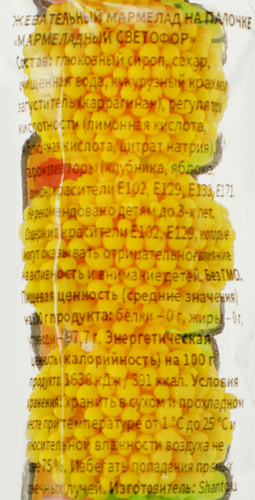 ЖЕВАТЕЛЬНЫЙ МАРМЕЛАД НА ПАЛОЧКЕ
«МАРМЕЛАДНЫЙ СВЕТОФОР»
Состав: глюкозный сироп, сахар,
очищенная вода, кукурузный крахмал
загуститель (каррагинан), регулятор
кислотности (лимонная кислота,
яблочная кислота, цитрат натрия)
ароматизаторы (клубника, яблоко,
красители Е102, Е129, Е133, Е171.
Не рекомендовано детям до 3-х лет.
Содержит красители Е102, Е129, которые
могут оказывать отрицательное влияние
на активность и внимание детей. Без ГМО.
Пищевая ценность (средние значения)
на 100 г продукта: белки – 0 г, жиры – 0 г,
углеводы – 97,7 г. Энергетическая
ценность (калорийность) на 100 г
продукта 1638 кДж / 391 ккал. Условия
хранения: хранить в сухом и прохладном
месте при температуре от 1 °С до 25 °С и
относительной влажности воздуха не
75%. Избегать попадания прямых
солнечных лучей. Изготовитель: Shantou